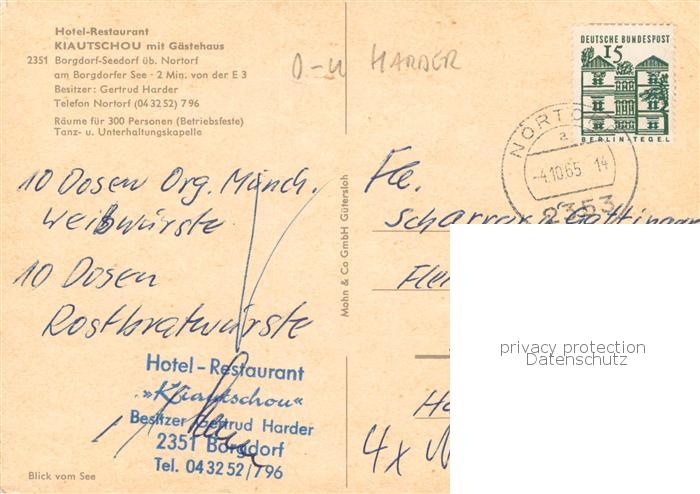 Hotel-Restaurant
KIAUTSCHOU mit Gästehaus
2351 Borgdorf-Seedorf üb. Nortorf
am Borgdorfer See · 2 Min. von der E 3
Besitzer: Gertrud Harder
Telefon Nortorf (04 32 52) 7 96
Räume für 300 Personen (Betriebsfeste)
Tanz- u. Unterhaltungskapelle
D-U HARDER
DEUTSCHE BUNDESPOST
15
BERLIN-TEGEL
NORTO
a
-4.10.65 14
2353
10 Dosen Org. Münch.
Weißwürste
10 Dosen
Rostbratwürste
Hotel-Restaurant
„Kiautschou“
Besitzer Gertrud Harder
2351 Borgdorf
Tel. 04 32 52 / 796
Blick vom See
Mohn & Co GmbH Gütersloh
Fa.
Fle
Ha
4x N
privacy protection
Datenschutz